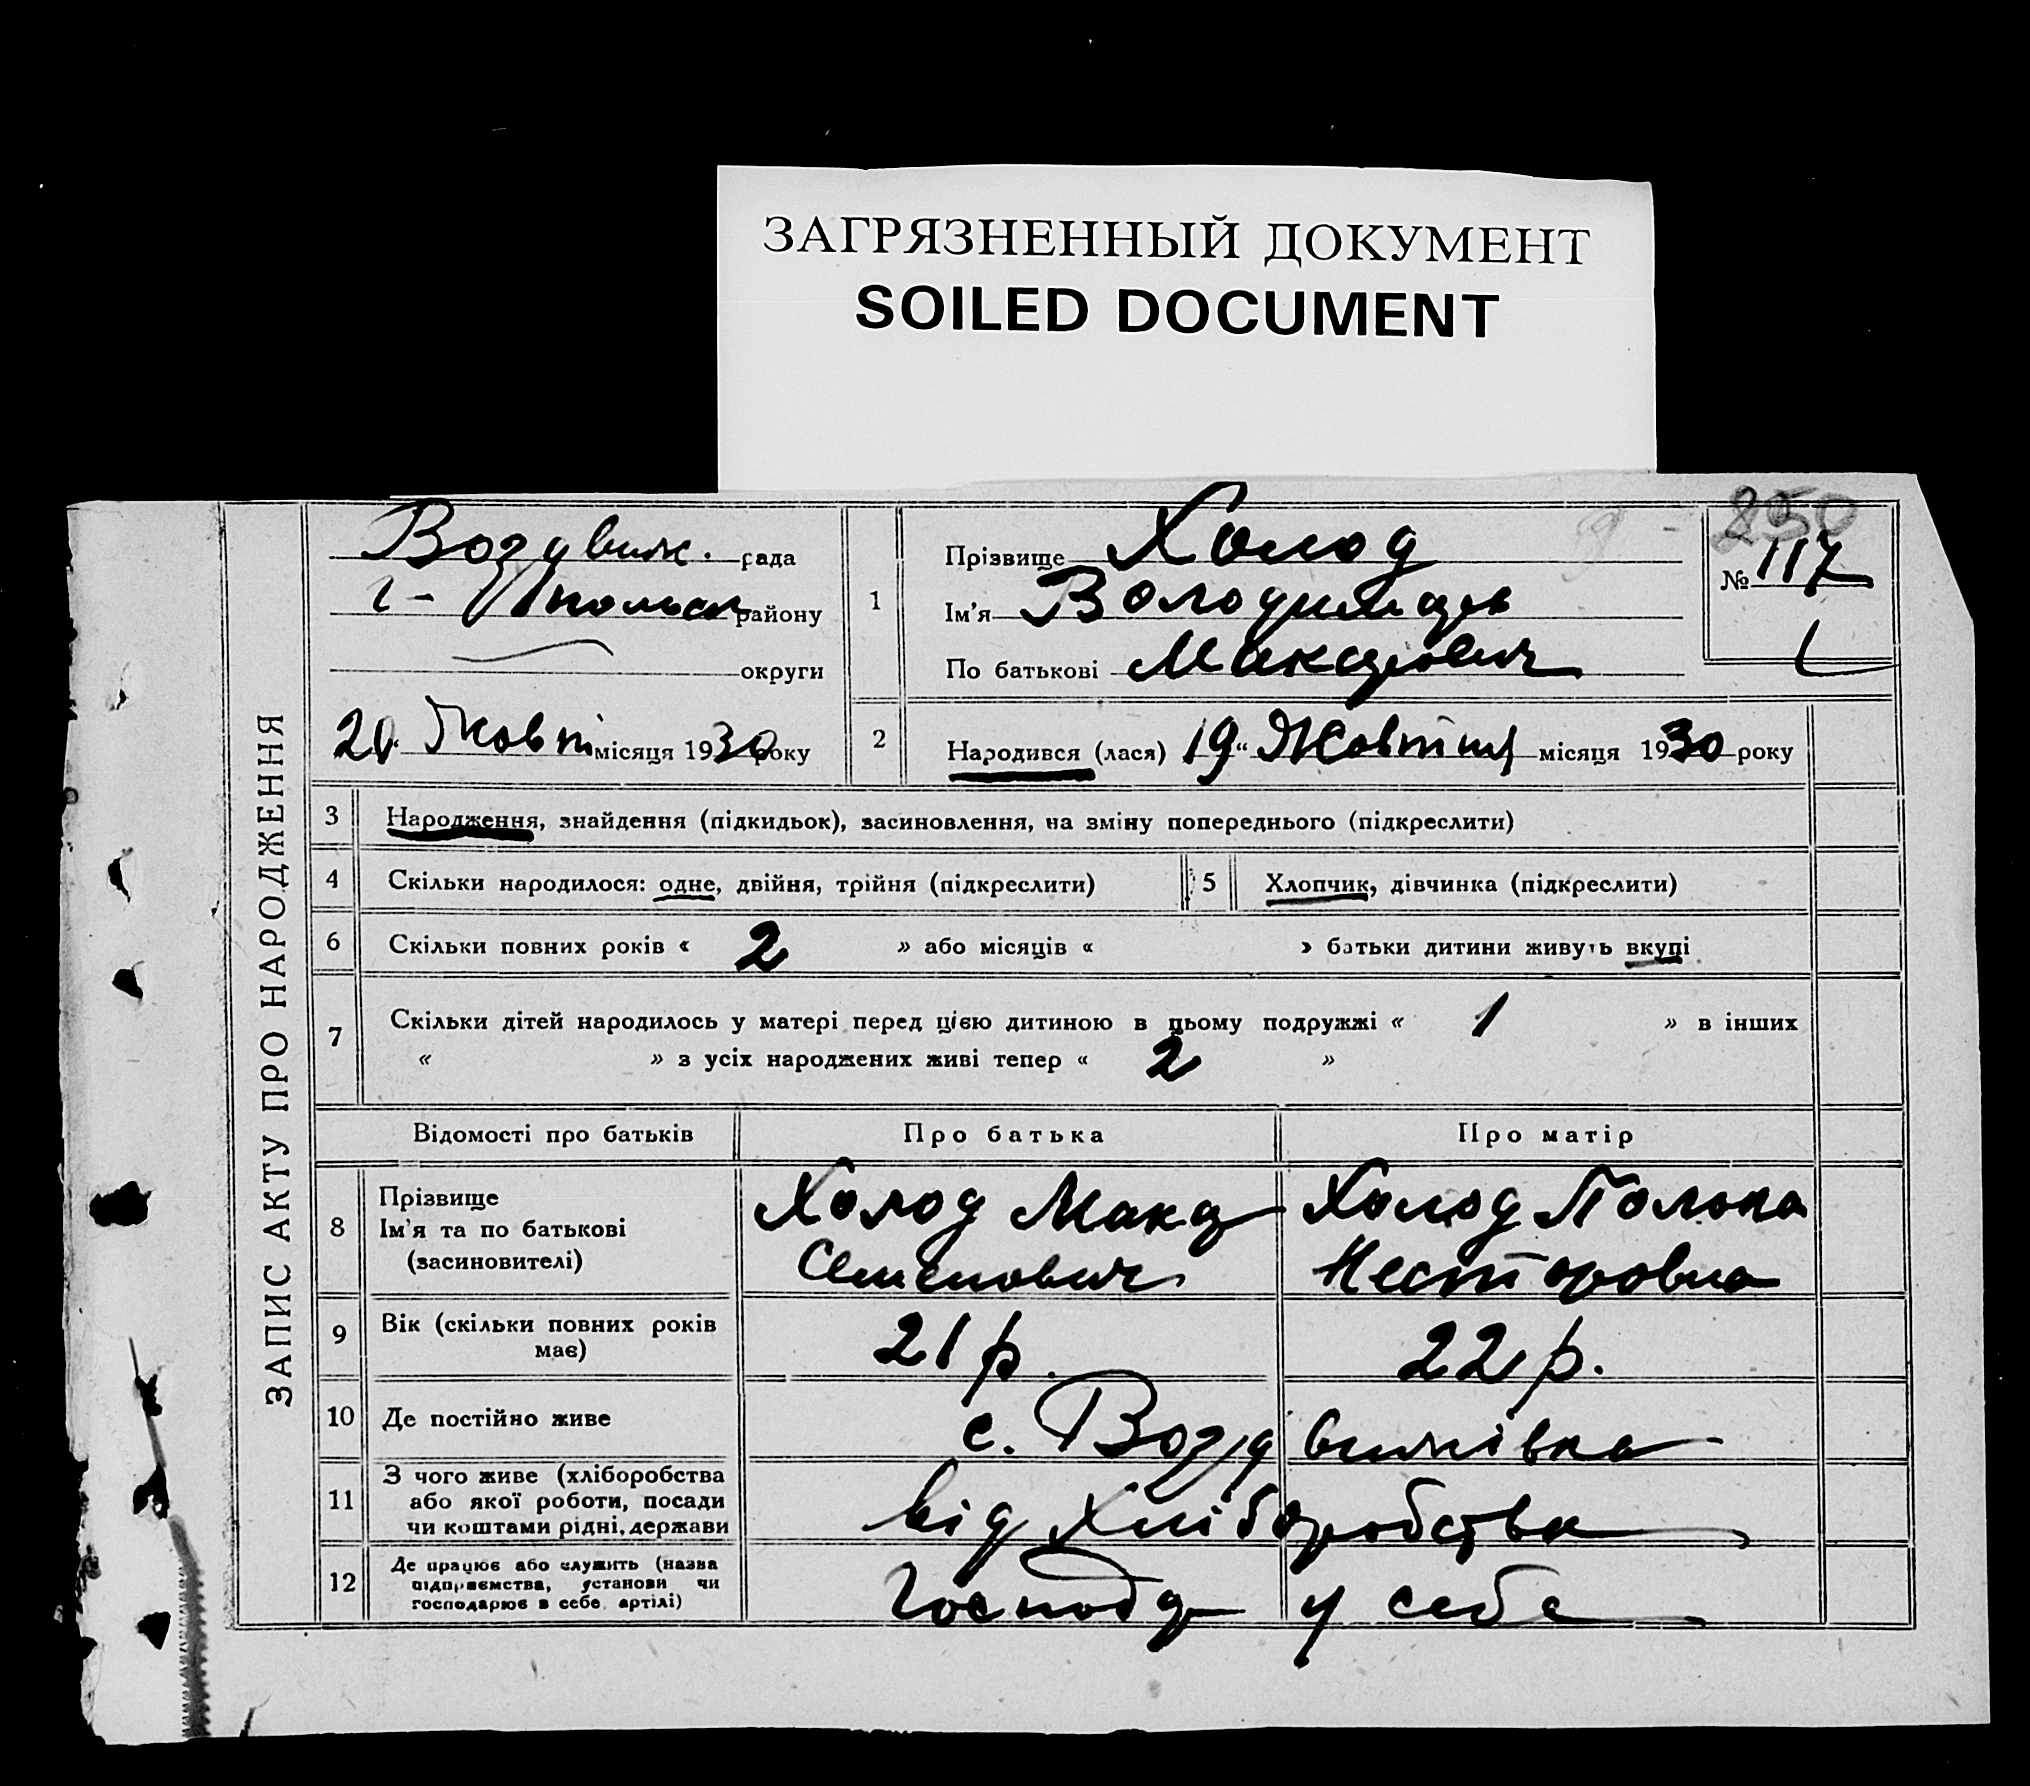 ЗАГРЯЗНЕННЫЙ ДОКУМЕНТ
SOILED DOCUMENT
ЗАПИС АКТУ ПРО НАРОДЖЕННЯ
Воздвиж. рада
Г-Чпольск району
округи
20 Жовтн місяця 1930 року
1
Прізвище Холод
Ім'я Володимир
По батькові Макарович
250
№ 117
2
Народився (лася) 19 " Жовтня місяця 1930 року
3 Народження, знайдення (підкидьок), засиновлення, на зміну попереднього (підкреслити)
4 Скільки народилося: одне, двійня, трійня (підкреслити) 5 Хлопчик, дівчинка (підкреслити)
6 Скільки повних років « 2 » або місяців « » батьки дитини живуть вкупі
7 Скільки дітей народилось у матері перед цією дитиною в цьому подружжі « 1 » в інших
« » з усіх народжених живі тепер « 2 »
Відомості про батьків Про батька Про матір
8 Прізвище
Ім'я та по батькові
(засиновителі)
Холод Макар
Семенович
Холод Полька
Несторовна
9 Вік (скільки повних років
має)
21 р. 22 р.
10 Де постійно живе с. Воздвижівка
11 З чого живе (хліборобства
або якої роботи, посади
чи коштами рідні, держави
від Хліборобства
12 Де працює або служить (назва
підприємства, установи чи
господарює в себе, артілі)
Господар у себе